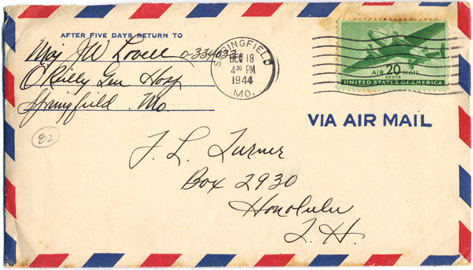 AFTER FIVE DAYS RETURN TO
Maj JW Lovell
O'Reilly Gen Hosp
Springfield Mo
SPRINGFIELD
DEC 18
4 30 PM
1944
MO.
AIR 20 MAIL
UNITED STATES OF AMERICA
VIA AIR MAIL
82
F. L. Turner
Box 2930
Honolulu
T. H.